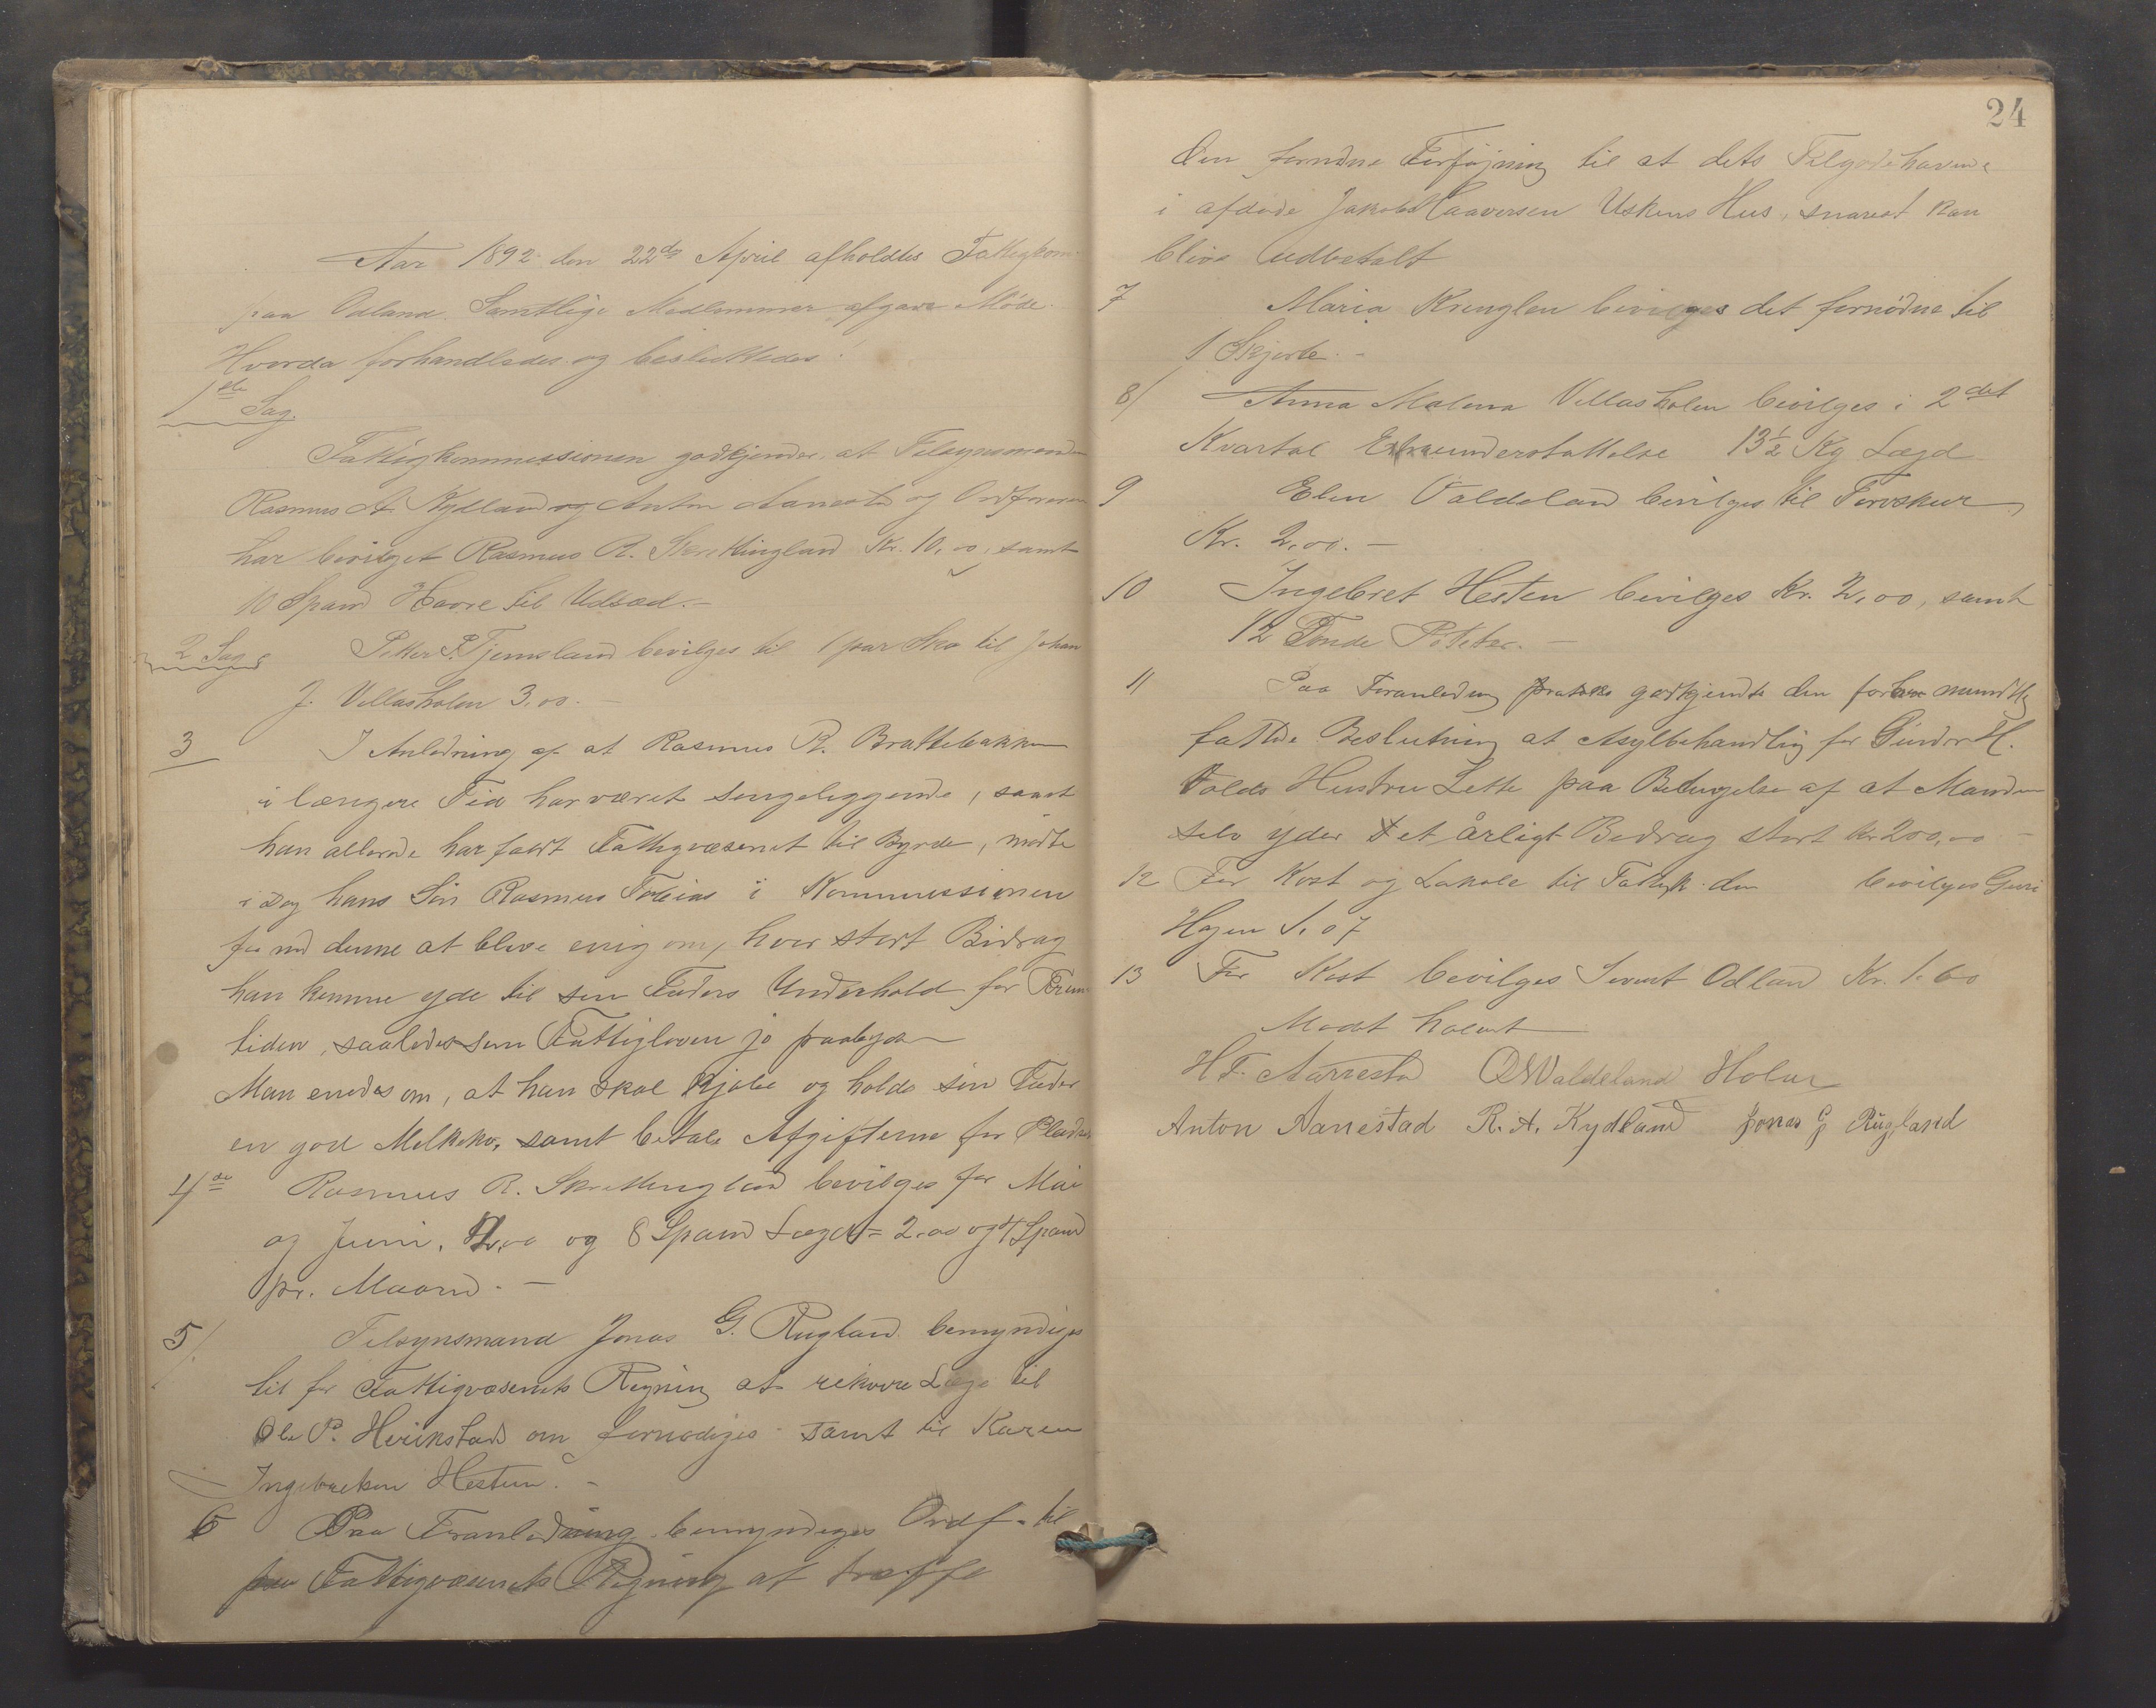 Aar 1892 den 22de April afholdtes Fattigkom-
paa Odland. Samtlige Medlemmer afgave Møde.
Hvorda forhandledes og besluttedes:
1ste Sag.
Fattigkommissionen godkjender, at Tilsynsmænd
Rasmus A. Kydland og Anton Aanestad og Ordføreren
har bevilget Rasmus R. Skrettingland Kr. 10,00, samt
10 Spand Havre til Udsæd.-
2 Sag
Petter P. Tjemsland bevilges til 1 par Sko til Johan
J. Vellasholen 3,00.-
3
I Anledning af at Rasmus R. Brattebakken
i længere Tid har været sengeliggende, samt
han allerede har faldt Fattigvæsenet til Byrde, mødte
i Dag hans Søn Rasmus Tobias i Kommissionen
for med denne at blive enig om, hvor stort Bidrag
han kunne yde til sin Faders Underhold for Frem-
tiden, saaledes som Fattigloven jo paabyder
Man enedes om, at han skal kjøbe og holde sin Fader
en god Melkeko, samt betale Afgifterne for Pladsen
4de Rasmus R. Skrettingland bevilges for Mai
og Juni, 4,00 og 8 Spand Lægd = 2,00 og 4 Spand
pr. Maaned.-
5/. Tilsynsmand Jonas G. Rugland bemyndiges
til for Fattigvæsenets Regning at rekvirere Læge til
Ole P. Herikstad om fornødiges samt til Karen
Ingebretsen Hesten.-
6 Paa Foranledning bemyndiges Ordf. til
paa Fattigvæsenets Regning at træffe
24
den fornødne Forføjning til at dets Tilgodehavende
i afdøde Jakob Haaversen Uskens Hus, snarest kan
blive udbetalt
7 Maria Krenglen bevilges det fornødne til
1 Skjorte.-
8/ Anna Malena Vellasholen bevilges i 2det
Kvartal Extraunderstøttelse 13½ Kg Lægd
9 Elen Valdeland bevilges til Torvskur
Kr. 2,00.-
10 Ingebret Hesten bevilges Kr. 2,00, samt
1/2 Tønde Poteter.-
11 Paa Foranledning godkjendte den forhen mundtlig
fattede Beslutning at Asylbehandling for Gunder H.
Volds Hustru Lette paa Betingelse af at Manden
selv yder et årligt Bidrag stort kr 200,00 -
12 For Kost og Lokale til Fattigk. den bevilges Guri
Hagen 1.07
13 For Kost bevilges Sivert Odland Kr. 1.60
Mødet hævet
H. T. Aarrestad O Waldeland Holen
Anton Aanestad R. A. Kydland Jonas G Rugland